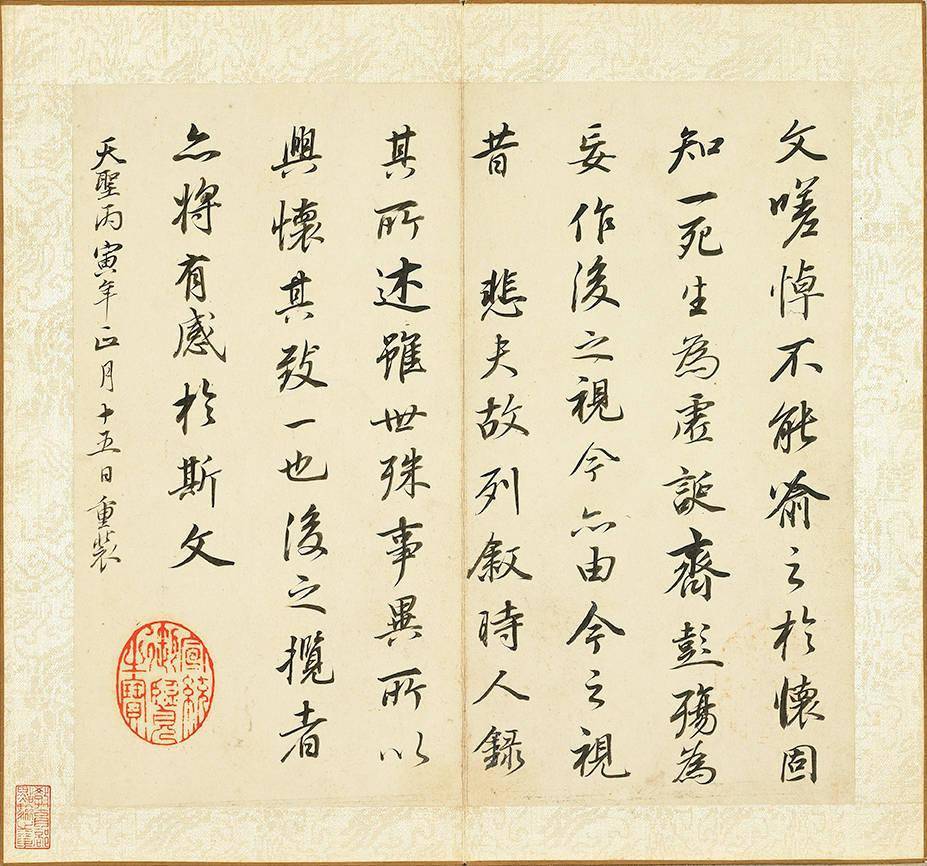 文嗟悼不能喻之於懷固
知一死生為虛誕齊彭殤為
妄作後之視今亦由今之視
昔 悲夫故列叙時人錄
其所述雖世殊事異所以
興懷其致一也後之攬者
亦將有感於斯文
天聖丙寅年正月十五日重裝
宣統御覽之寶
教育部點驗之章